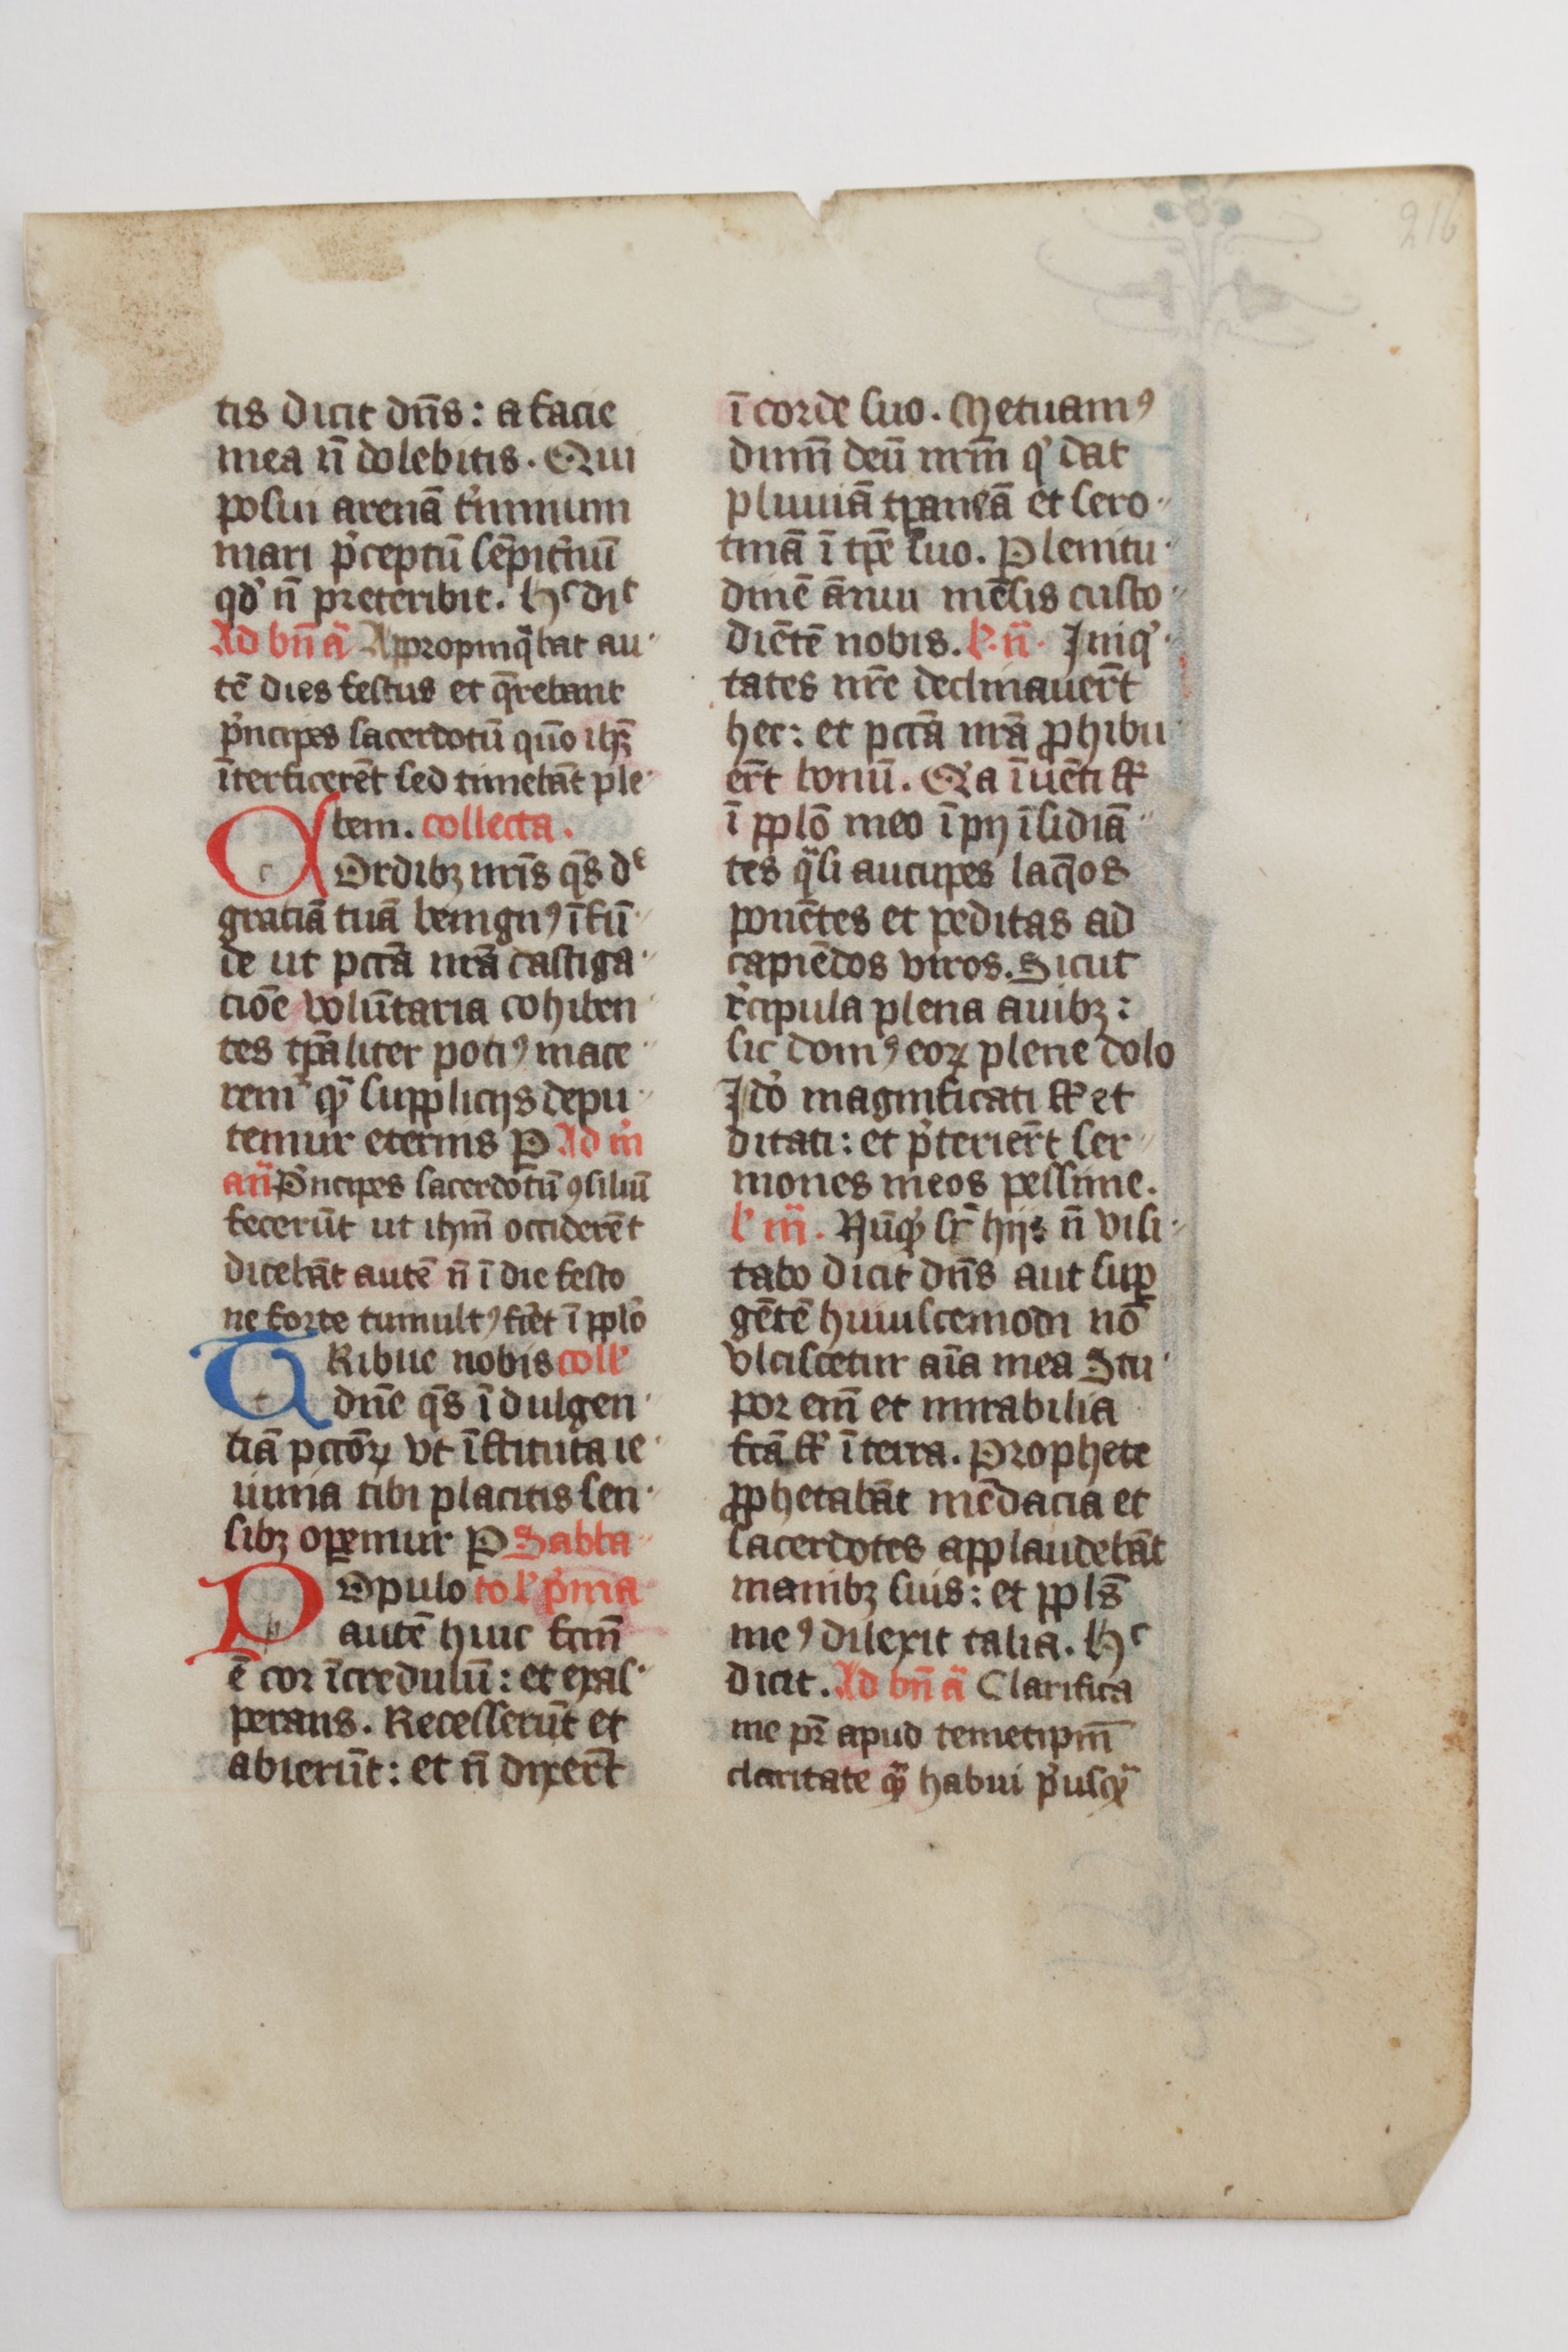 216
tis dicit dn̄s: a facie
mea n̄ dolebitis. Qui
posui arenā t'minum
mari p̄ceptū sēpit'nū
qd' n̄ preteribit. hͨ diͨ
Ad bn̄ ā Appropinq̄bat au
tē dies festus et q̄rebant
p'ncipes sacerdotū quō ihꝫ
īterficerēt sed timebāt ple
bem. collecta.
Cordibꝫ nrīs qs̄ dͤ
gratiā tuā benignꝰ īfū
de ut pctā nrā castiga
cioē volūtaria cohiben
tes tꝑaliter potiꝰ mace
rem' qͣꝫ supplicijs depu
temur eternis P Ad m̄
an̄ P'ncipes sacerdotū ꝯsiliū
fecerūt ut ihm̄ occiderēt
dicebāt autē n̄ ī die festo
ne forte tumultꝰ fiēt ī pplō
TRibue nobis coll'
dnē qs̄ īdulgen
tiā pctōꝝ vt īstituta ie
iunia tibi placitis sen
sibꝫ oꝑemur P Sabba
POpulo to l' p'ma
autē huic fctm̄
ē cor īcredulū: et exas
perans. Recesserūt et
abierūt: et n̄ dixert̄
ī corde suo. Metuamꝰ
dnm̄ deū nrm̄ q' dat
pluuiā tꝑaneā et sero
tinā ī tꝑe suo. Plenitu
dinē annui mēsis custo
diētē nobis. l' ii. Iniq'
tates nrē declinauert̄
hec: et pctā nrā ꝓhibu
ert̄ bonū. Qa īuēti sͭ
ī pplō meo īpij īsidiā
tes q̄si aucupes laq̄os
ponētes et peditas ad
capiēdos viros. Sicut
d'cipula plena auibꝫ:
sic domꝰ eoꝝ plene dolo
Ido magnificati sͭ et
ditati: et p̄teriert̄ ser
mones meos pessime.
l' iii. Nūqͥd sr̄ hijs n̄ visi
tabo dicit dn̄s aut suꝑ
gētē huiuscemodi nō
vlciscetur aīa mea Stu
por em̄ et mirabilia
fctā sͭ ī terra. Prophete
ꝓphetabāt mēdacia et
sacerdotes applaudebāt
manibꝫ suis: et ppls̄
meꝰ dilexit talia. hͨ
dicit. Ad bn̄ ā Clarifica
me pr̄ apud temetipm̄
claritate qͣꝫ habui p'usqͣꝫ